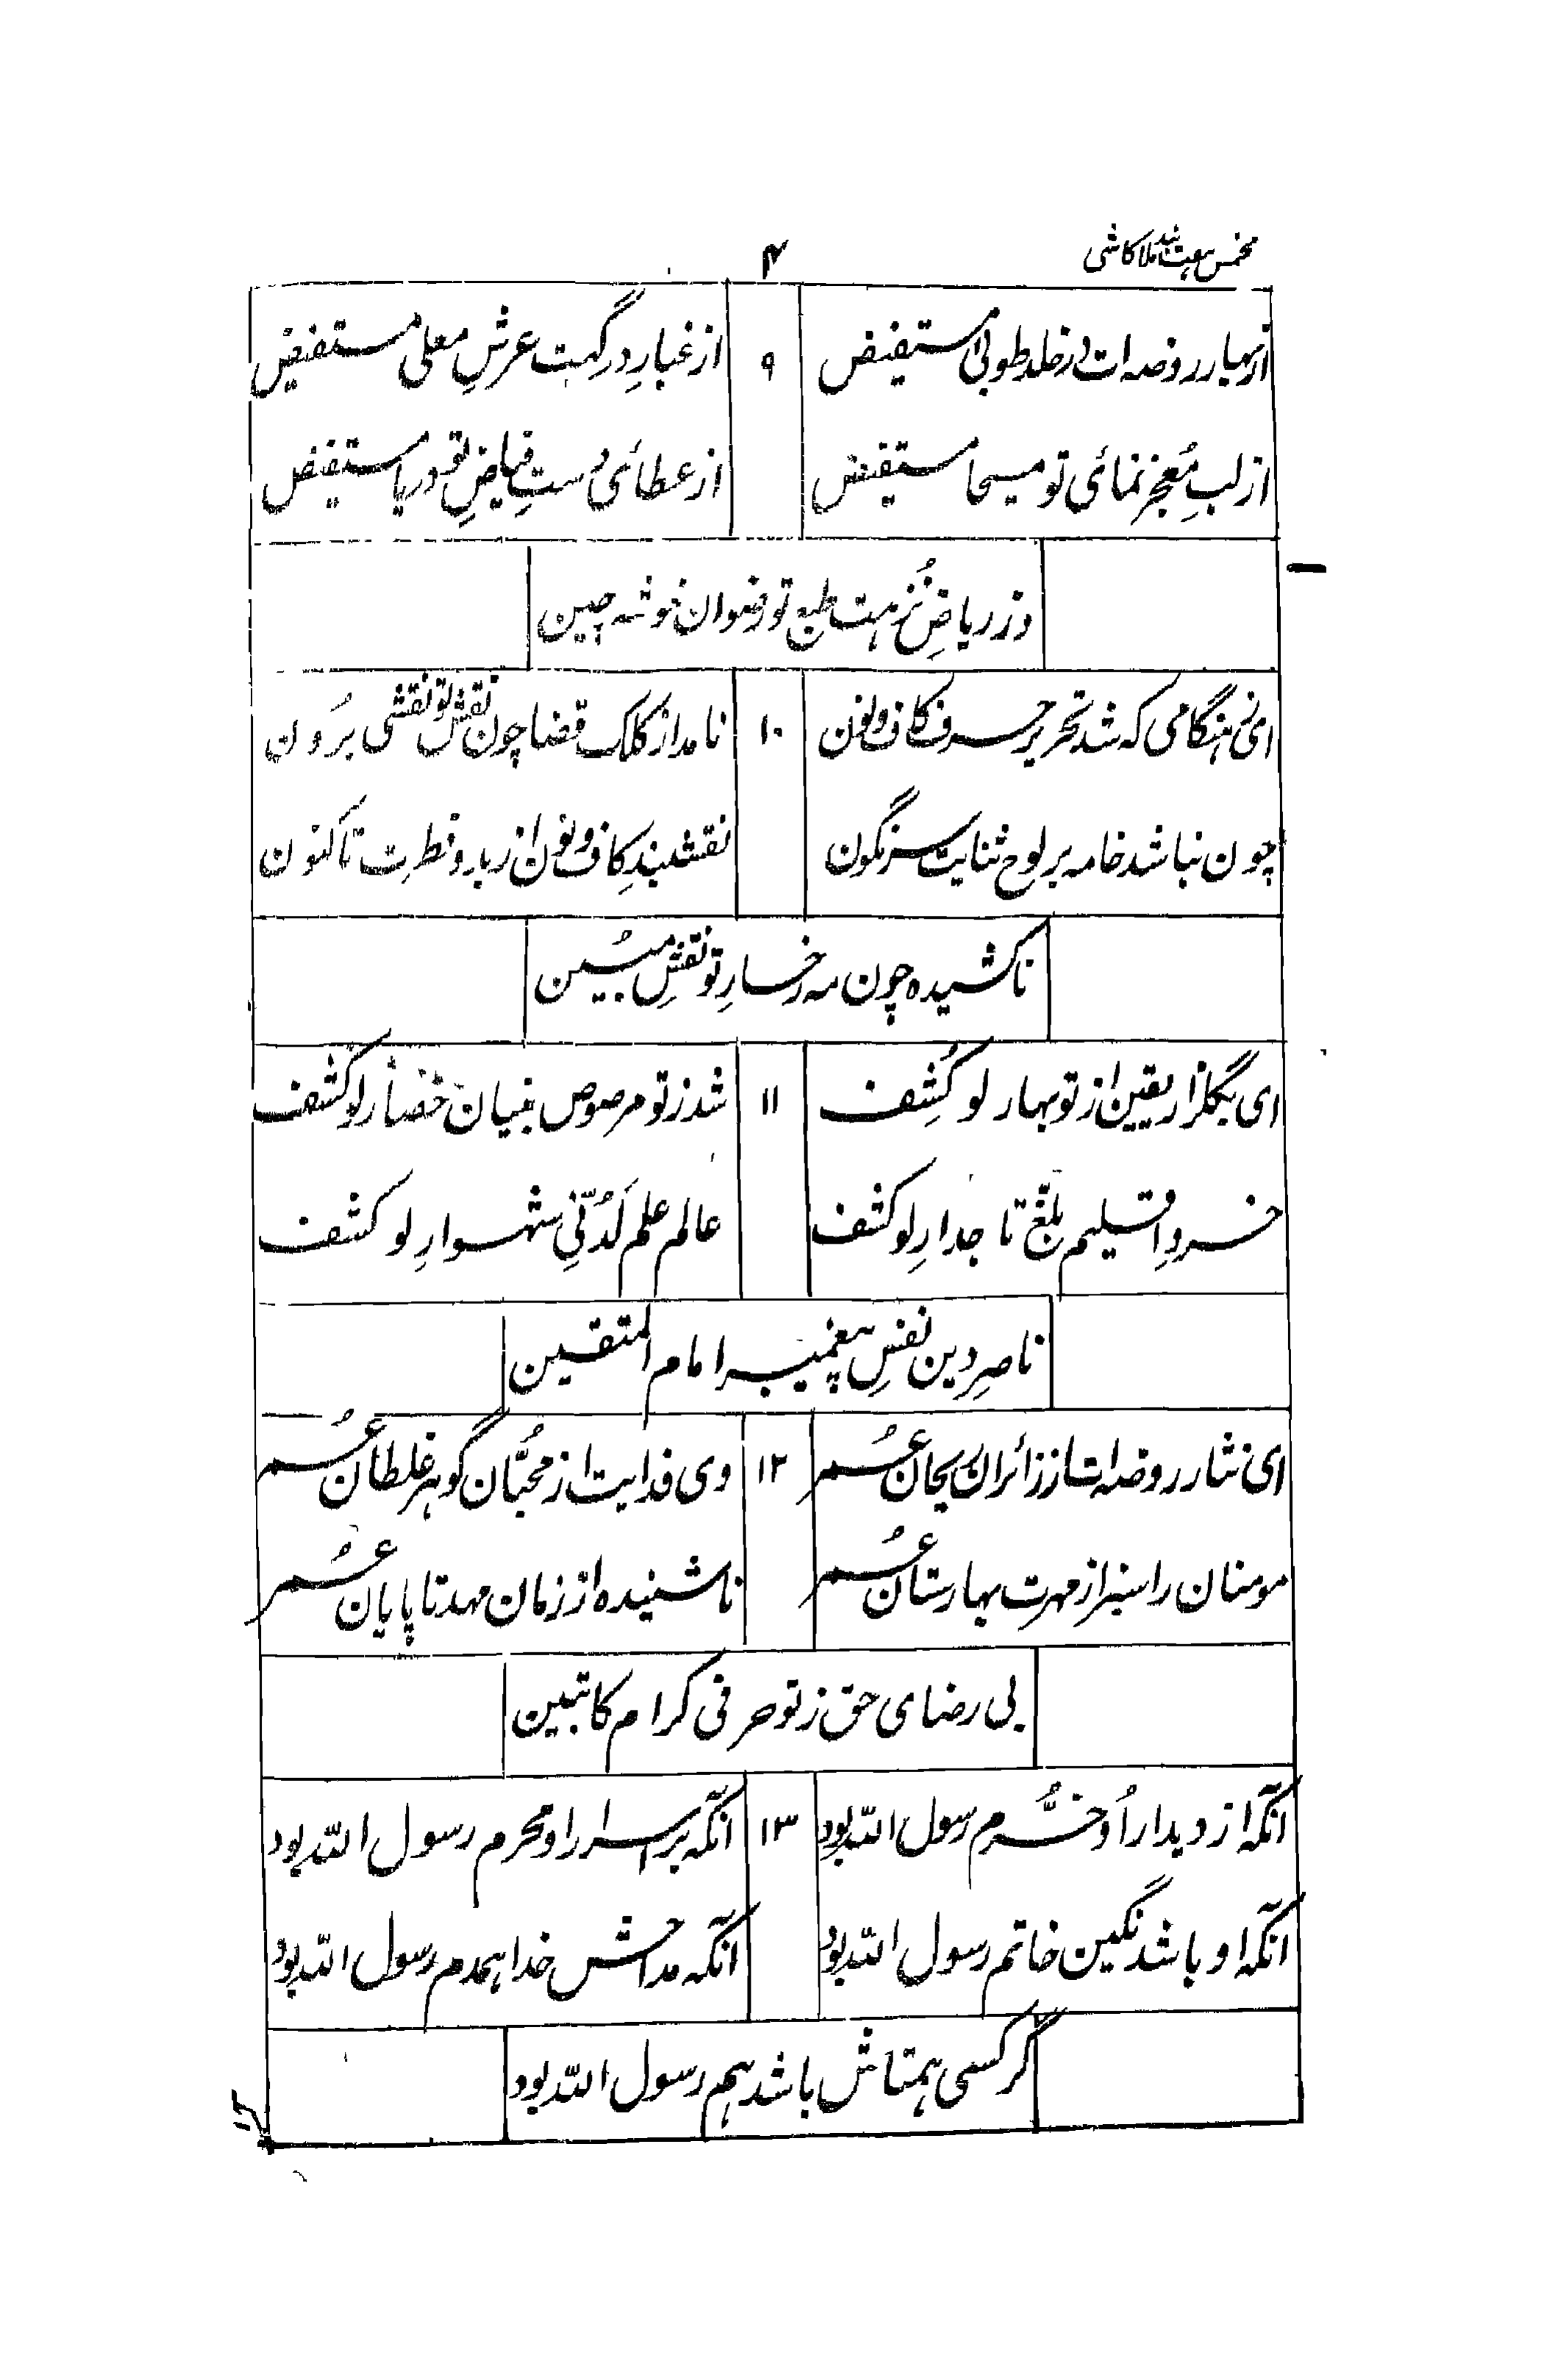 مخمس هفت بند ملا کاشی
۴
از بهار روضه ات در خلد طوبی مستفیض
۹
از غبارِ درگهت عرشِ معلی مستفیض
از لبِ مُعجز نمائی تو مسیحا مستفیض
از عطائی دستِ فیاضِ تو دریا مستفیض
وز ریاضِ نُزهت طبع تو رضوان خوشه چین
ای ز هنگامی که شد تحریر حرف کاف و نون
۱۰
نامد از کلک قضا چون نقش تو نقشی بُرون
چون نباشد خامه بر لوح ثنایت سرنگون
نقشبندِ کاف و نون از بدو فطرت تا کنون
ناکشیده چون مه رخسارِ تو نقشِ مُبین
ای بگلزار یقین از تو بهار لو کُشِف
۱۱
شد ز تو مرصوص بنیان حصار لو کشف
خسروِ اقلیم بلّغ تاجدارِ لو کشف
عالم علم لَدُنّی شهسوارِ لو کشف
ناصرِ دین نفسِ پیغمبر امام المتقین
ای نثار روضه ات از زائران ریحان عُمر
۱۲
وی فدایت از محبّان گوهر غلطان عُمر
مومنان را سبز از مهرت بهارستان عُمر
ناشنیده از زمان مهد تا پایان عُمر
بی رضای حق ز تو حرفی کرام کاتبین
آنکه از دیدار اُو خُرّم رسول الله بود
۱۳
آنکه بر اسرار او محرم رسول الله بود
آنکه او باشد نگین خاتم رسول الله بود
آنکه مداحش خدا همدم رسول الله بود
گر کسی همتاش باشد هم رسول الله بود